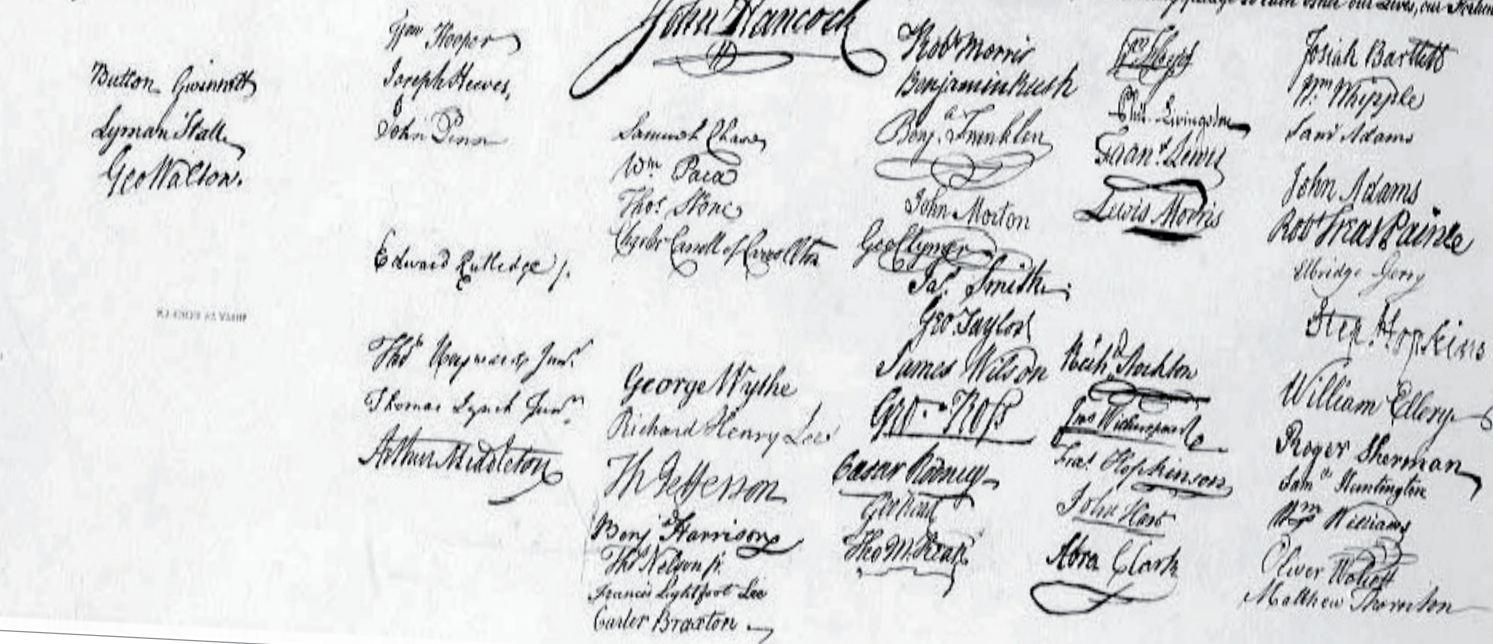 pledge to each other our Lives, our
Button Gwinnett
Lyman Hall
Geo Walton.
Wm Hooper
Joseph Hewes,
John Penn
Edward Rutledge /.
Thos Heyward Junr.
Thomas Lynch Junr.
Arthur Middleton
John Hancock
Samuel Chase
Wm Paca
Thos Stone
Charles Carroll of Carrollton
George Wythe
Richard Henry Lee
Th Jefferson
Benj Harrison
Thos Nelson jr.
Francis Lightfoot Lee
Carter Braxton
Robt Morris
Benjamin Rush
Benja. Franklin
John Morton
Geo Clymer
Jas. Smith
Geo. Taylor
James Wilson
Geo. Ross
Caesar Rodney
Geo Read
Tho M:Kean
Wm Floyd
Phil. Livingston
Frans. Lewis
Lewis Morris
Richd. Stockton
Jno Witherspoon
Fras. Hopkinson
John Hart
Abra Clark
Josiah Bartlett
Wm Whipple
Saml Adams
John Adams
Robt Treat Paine
Elbridge Gerry
Step. Hopkins
William Ellery
Roger Sherman
Saml Huntington
Wm Williams
Oliver Wolcott
Matthew Thornton